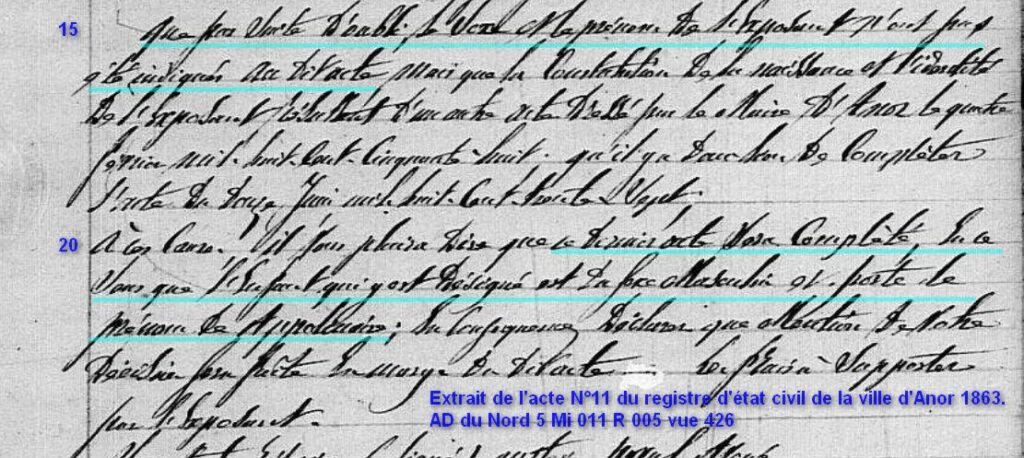 15 que par suite d'oubli, le sexe et le prénom de l'exposant n'ont pas
été indiqués au dit acte, mais que la constatation de la naissance et l'identité
de l'exposant résultent d'un autre acte dressé par le Maire d'Anor le quatre
février mil-huit-cent-cinquante-huit. qu'il y a donc lieu de compléter
l'acte du douze Juin mil-huit-cent-trente-sept.
20 à ces causes, il vous plaira dire que ce dernier acte sera complété, en ce
sens que l'enfant qui y est désigné est du sexe Masculin et porte le
prénom de Appolinaire; en conséquence, déclarer que mention de votre
décision sera faite en marge du dit acte les frais à supporter
par l'exposant.
Extrait de l'acte N°11 du registre d'état civil de la ville d'Anor 1863.
AD du Nord 5 Mi 011 R 005 vue 426